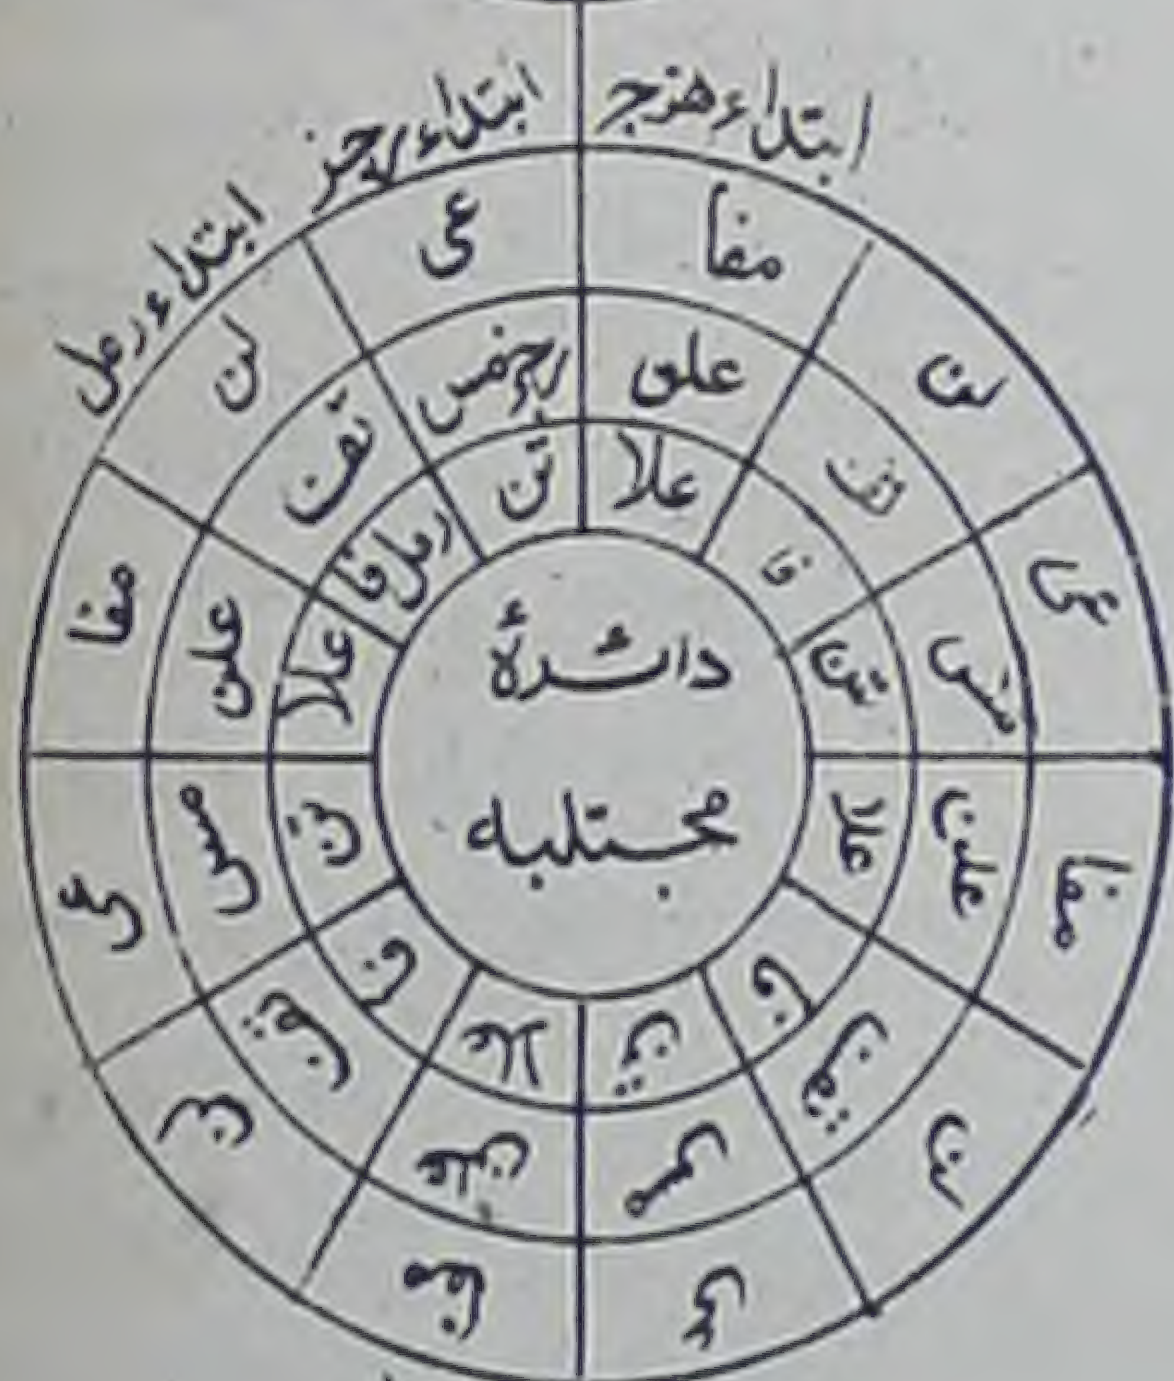 ابتداء هزج
ابتداء رجز
ابتداء رمل
مفا
عی
لن
مفا
عی
لن
مفا
عی
لن
مفا
عی
لن
علن
رجز مس
تف
علن
مس
تف
علن
مس
تف
علن
مس
تف
علا
تن
رمل فا
علا
تن
فا
علا
تن
فا
علا
تن
فا
دائرۂ
مجتلبہ